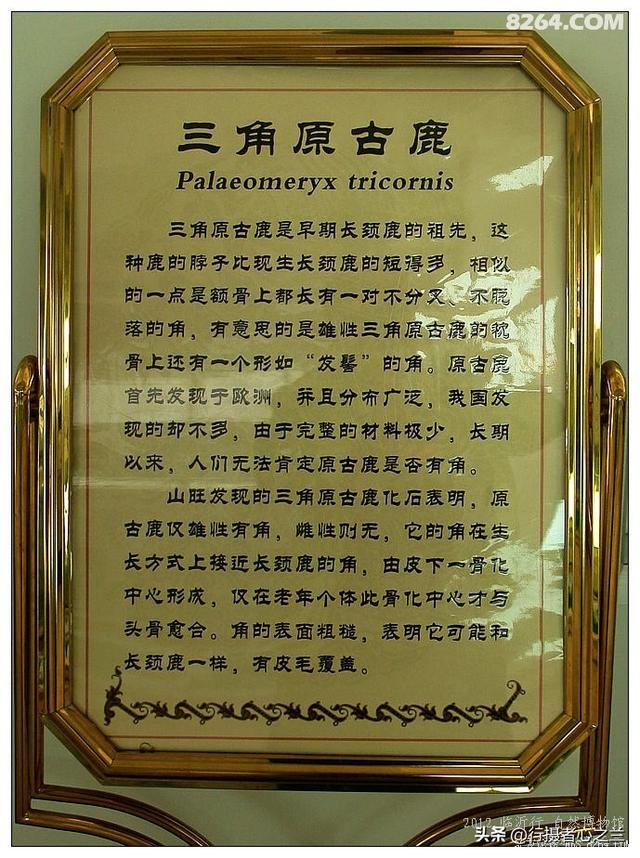 8264.COM
三角原古鹿
Palaeomeryx tricornis
三角原古鹿是早期长颈鹿的祖先，这
种鹿的脖子比现生长颈鹿的短得多，相似
的一点是额骨上都长有一对不分叉、不脱
落的角，有意思的是雄性三角原古鹿的枕
骨上还有一个形如“发髻”的角。原古鹿
首先发现于欧洲，并且分布广泛，我国发
现的却不多，由于完整的材料极少，长期
以来，人们无法肯定原古鹿是否有角。
山旺发现的三角原古鹿化石表明，原
古鹿仅雄性有角，雌性则无，它的角在生
长方式上接近长颈鹿的角，由皮下一骨化
中心形成，仅在老年个体此骨化中心才与
头骨愈合。角的表面粗糙，表明它可能和
长颈鹿一样，有皮毛覆盖。
2012 临沂行 自然博物馆
头条 @行摄者心之兰